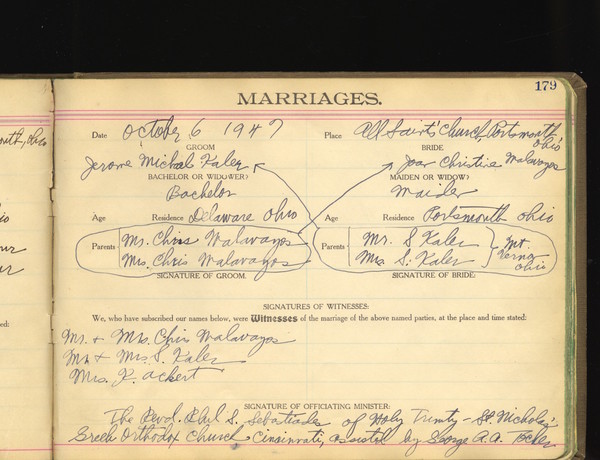 179
MARRIAGES.
Date October 6 1947 Place All Saints' Church, Portsmouth
Ohio
GROOM BRIDE
Jerome Michael Kaler Joan Christine Malavazos
BACHELOR OR WIDOWER? MAIDEN OR WIDOW?
Bachelor Maiden
Age Residence Delaware Ohio Age Residence Portsmouth Ohio
Parents Mr. Chris Malavazos Parents Mr. S Kaler Mt.
Mrs. Chris Malavazos Mrs S. Kaler Verno
Ohio
SIGNATURE OF GROOM. SIGNATURE OF BRIDE:
SIGNATURES OF WITNESSES:
We, who have subscribed our names below, were Witnesses of the marriage of the above named parties, at the place and time stated:
Mr. & Mrs. Chris Malavazos
Mr & Mrs. S. Kaler
Mrs. K. Ackert
SIGNATURE OF OFFICIATING MINISTER:
The S. of Holy Trinity - St. Nicholas
Greek Orthodox Church Cincinnati, assisted by George A.A.